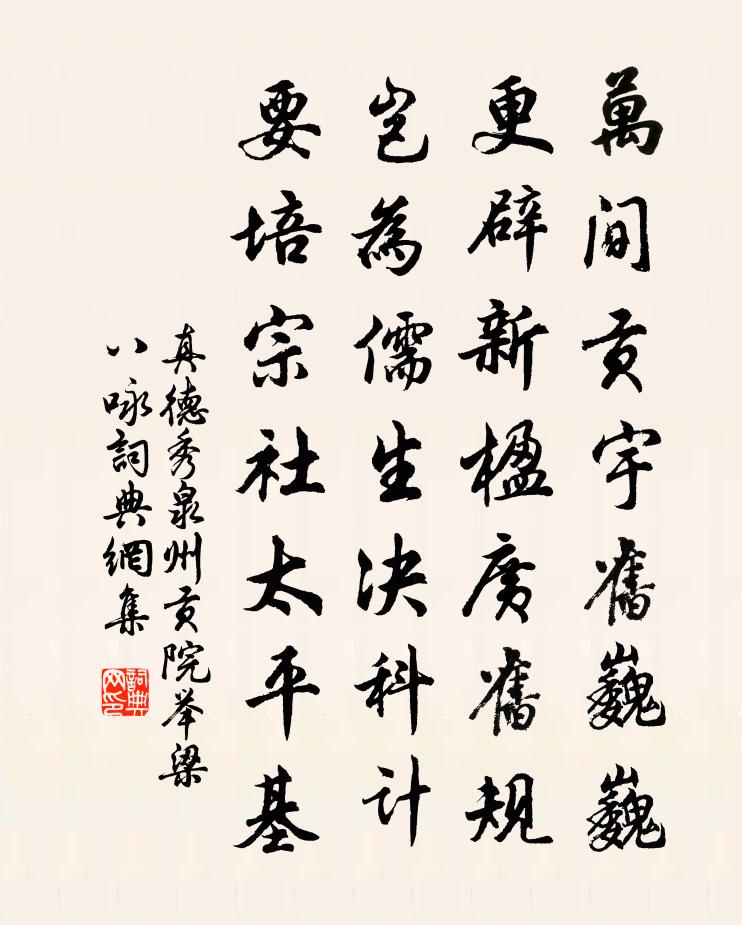 萬間貢宇舊巍巍
更辟新楹廣舊規
豈為儒生決科計
要培宗社太平基
真德秀泉州貢院舉梁
八咏詞典網集
詞典
网印